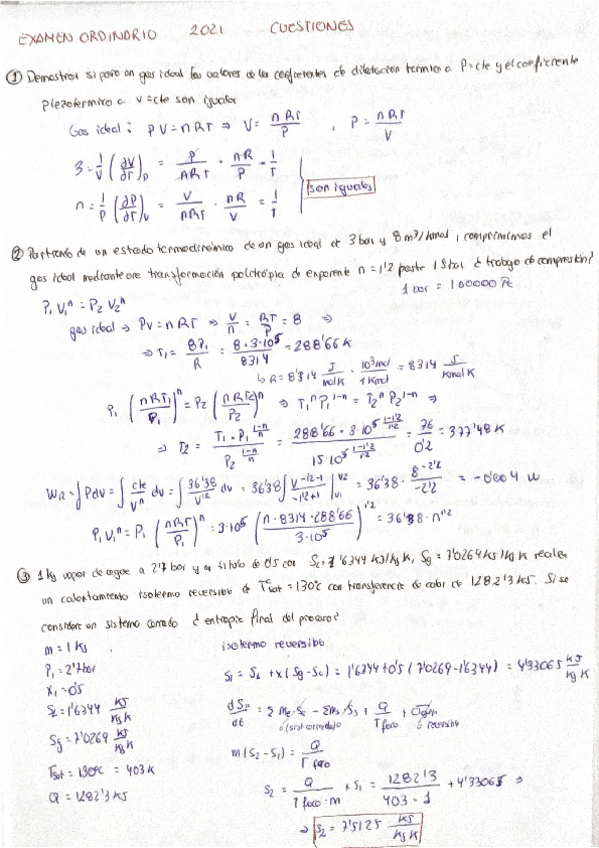 EXAMEN ORDINARIO 2021 CUESTIONES
① Demostrar si para un gas ideal los valores de los coeficientes de dilatación termico a P=cte y el coeficiente
piezotermico a V=cte son iguales
Gas ideal: PV=nRT ⇒ V= nRT/P , P= nRT/V
β = 1/V (∂V/∂T)p = P/nRT · nR/P = 1/T
n = 1/P (∂P/∂T)v = V/nRT · nR/V = 1/T
son iguales
② Partiendo de un estado termodinámico de un gas ideal de 3 bar y 8 m³/kmol, comprimimos el
gas ideal mediante una transformación politrópica de exponente n=1'2 hasta 15 bar ¿ trabajo de compresión?
1 bar = 100000 Pa
P₁V₁ⁿ = P₂V₂ⁿ
gas ideal → PV=nRT ⇒ V/n = RT/P = 8 ⇒
⇒ T₁ = 8P₁/R = 8·3·10⁵/8314 = 288'66 K
↳ R = 8'314 J/molK · 10³mol/1Kmol = 8314 J/KmolK
P₁ (nRT₁/P₁)ⁿ = P₂ (nRT₂/P₂)ⁿ ⇒ T₁ⁿP₁¹⁻ⁿ = T₂ⁿP₂¹⁻ⁿ ⇒
⇒ T₂ = = = = 377'48 K
W = ∫Pdv = ∫ cte/Vⁿ dv = ∫ 36'38 dv = 36'38
P₁V₁ⁿ = P₁ (nRT₁/P₁)ⁿ = 3·10⁵ (n·8314·288'66/3·10⁵)^1'2 = 36'38·n^1'2
③ 1 kg vapor de agua a 2'7 bar y un titulo de 0'5 con SL=1'6344 KJ/kg K, Sg=7'0269 KJ/kg K recibe
un calentamiento isotermo reversible de Tsat=130ºC con transferencia de calor de 1282'3 KJ. Si se
considera un sistema cerrado ¿ entropia final del proceso?
m = 1 kg isotermo reversible
P₁ = 2'7bar S₁ = SL + x(Sg-SL) = 1'6344+0'5 (7'0269-1'6344) = 4'33065 KJ/kg K
X₁ = 0'5
SL = 1'6344 KJ/kg K dS/dt = Σ me·Se - Σms·Ss + Q/Tfoco + σgen
Sg = 7'0269 KJ/kg K m(S₂-S₁) = Q/T foco
Tsat = 130ºC = 403 K S₂ = Q/T foco·m + S₁ = 1282'3/403·1 + 4'33065 ⇒
Q = 1282'3 KJ
⇒ S₂ = 7'5125 KJ/kg K